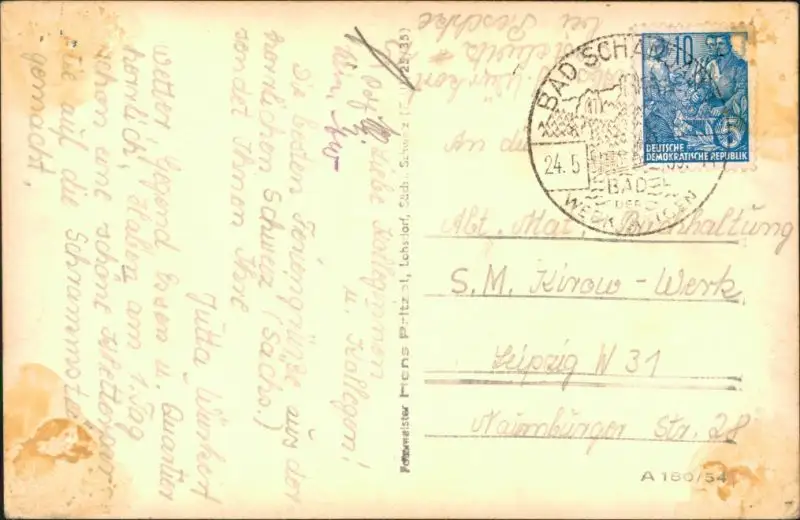 Liebe Kolleginnen
u. Kollegen!
Die besten Feriengrüße aus der
herrlichen Schweiz (Sächs.)
sendet Ihnen Ihre
Jutta Würkert
Wetter, Essen u. Quartier
herrlich, Haben am 1. Tag
schon eine schöne Kletterpar
tie auf die Schrammste
gemacht.
Fotomeister Hans Pritzel, Lohsdorf, Sächs. Schweiz
Würkert
BAD SCHAN
24.5
BÄDER
DER
WERKTÄTIGEN
10
5
DEUTSCHE
DEMOKRATISCHE REPUBLIK
An die
Abt. Mat. Buchhaltung
S.M. Kirow-Werk
Leipzig W 31
Naumburger Str. 28
A 180/54